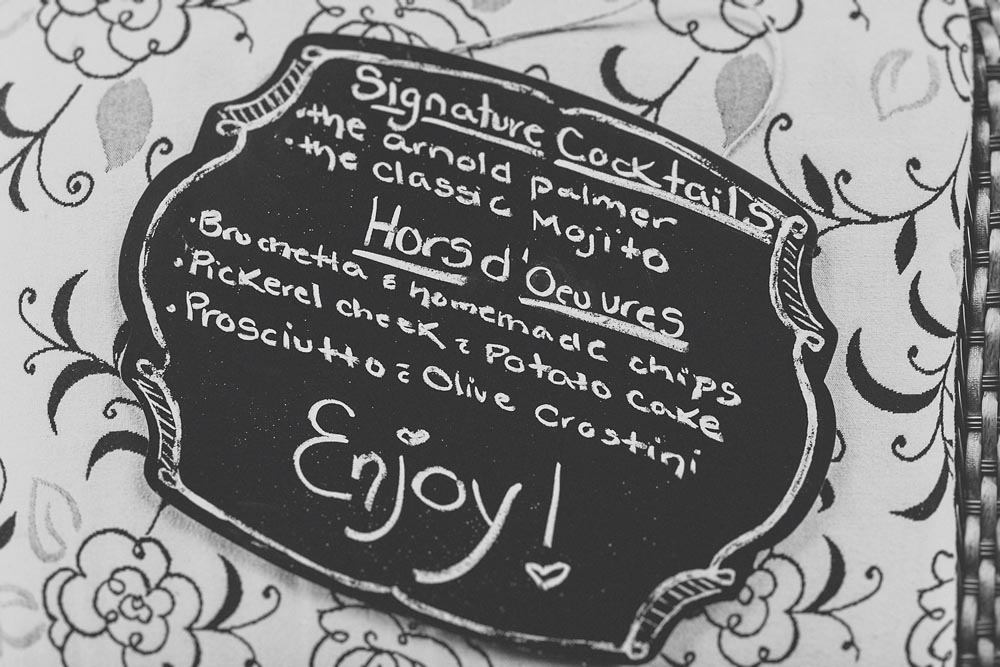 Signature Cocktails
·the arnold palmer
·the classic Mojito
Hors d'Oeuvres
·Bruchetta & homemade chips
·Pickerel cheek & Potato cake
·Prosciutto & Olive Crostini
Enjoy!